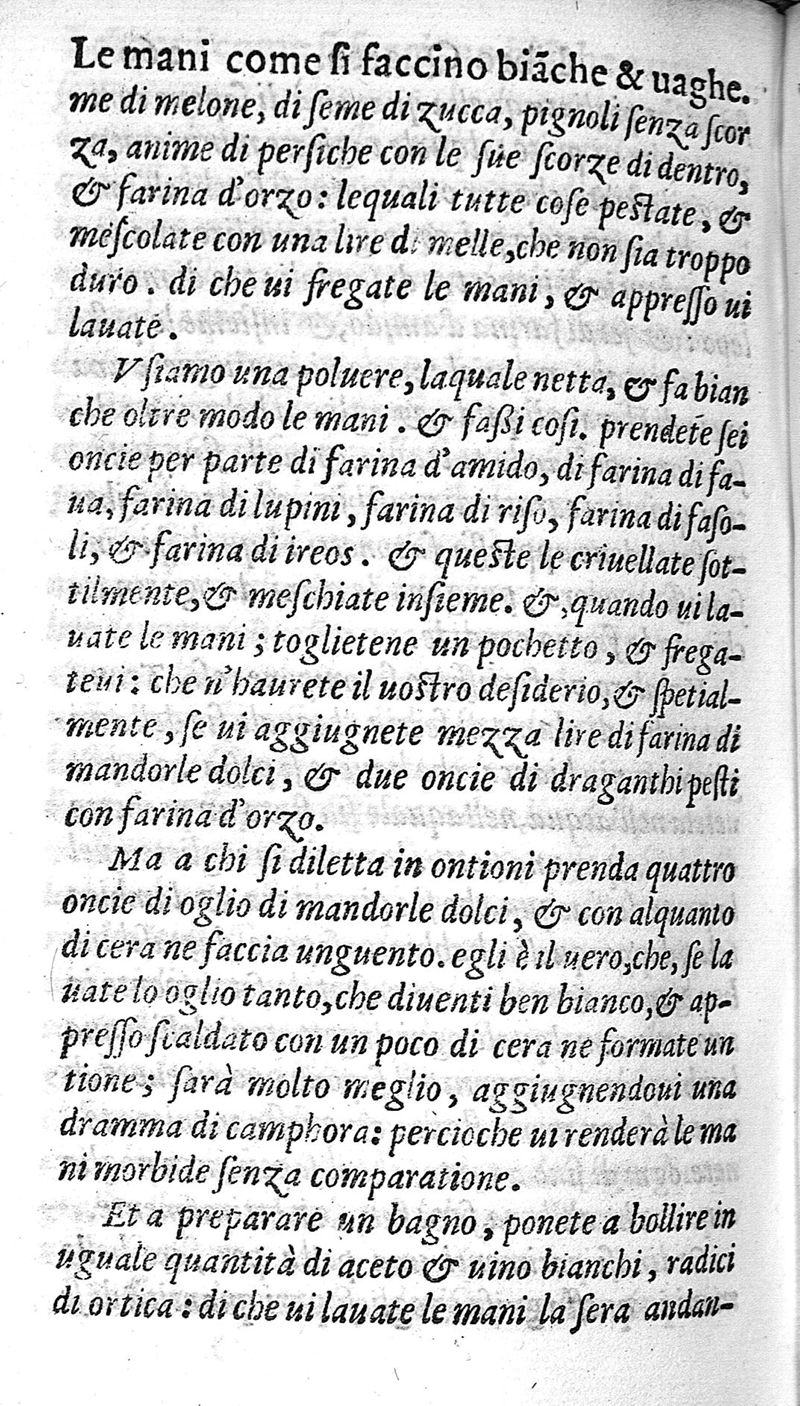 Le mani come ſi faccino biãche & uaghe.
me di melone, di ſeme di zucca, pignoli ſenza ſcor
za, anime di perſiche con le ſue ſcorze di dentro,
& farina d'orzo: lequali tutte coſe peſtate, &
meſcolate con una lire di melle, che non ſia troppo
duro. di che ui fregate le mani, & appreſſo ui
lauate.
Vſiamo una poluere, laquale netta, & fa bian
che oltre modo le mani. & faßi coſi. prendete ſei
oncie per parte di farina d'amido, di farina di fa-
ua, farina di lupini, farina di riſo, farina di faſo-
li, & farina di ireos. & queſte le criuellate ſot-
tilmente, & meſchiate inſieme. &, quando ui la-
uate le mani; toglietene un pochetto, & frega-
teui: che n'haurete il uoſtro deſiderio, & ſpetial-
mente, ſe ui aggiugnete mezza lire di farina di
mandorle dolci, & due oncie di draganthi peſti
con farina d'orzo.
Ma a chi ſi diletta in ontioni prenda quattro
oncie di oglio di mandorle dolci, & con alquanto
di cera ne faccia unguento. egli è il uero, che, ſe la
uate lo oglio tanto, che diuenti ben bianco, & ap-
preſſo ſcaldato con un poco di cera ne formate un
tione; ſarà molto meglio, aggiugnendoui una
dramma di camphora: percioche ui renderà le ma
ni morbide ſenza comparatione.
Et a preparare un bagno, ponete a bollire in
uguale quantità di aceto & uino bianchi, radici
di ortica: di che ui lauate le mani la ſera andan-